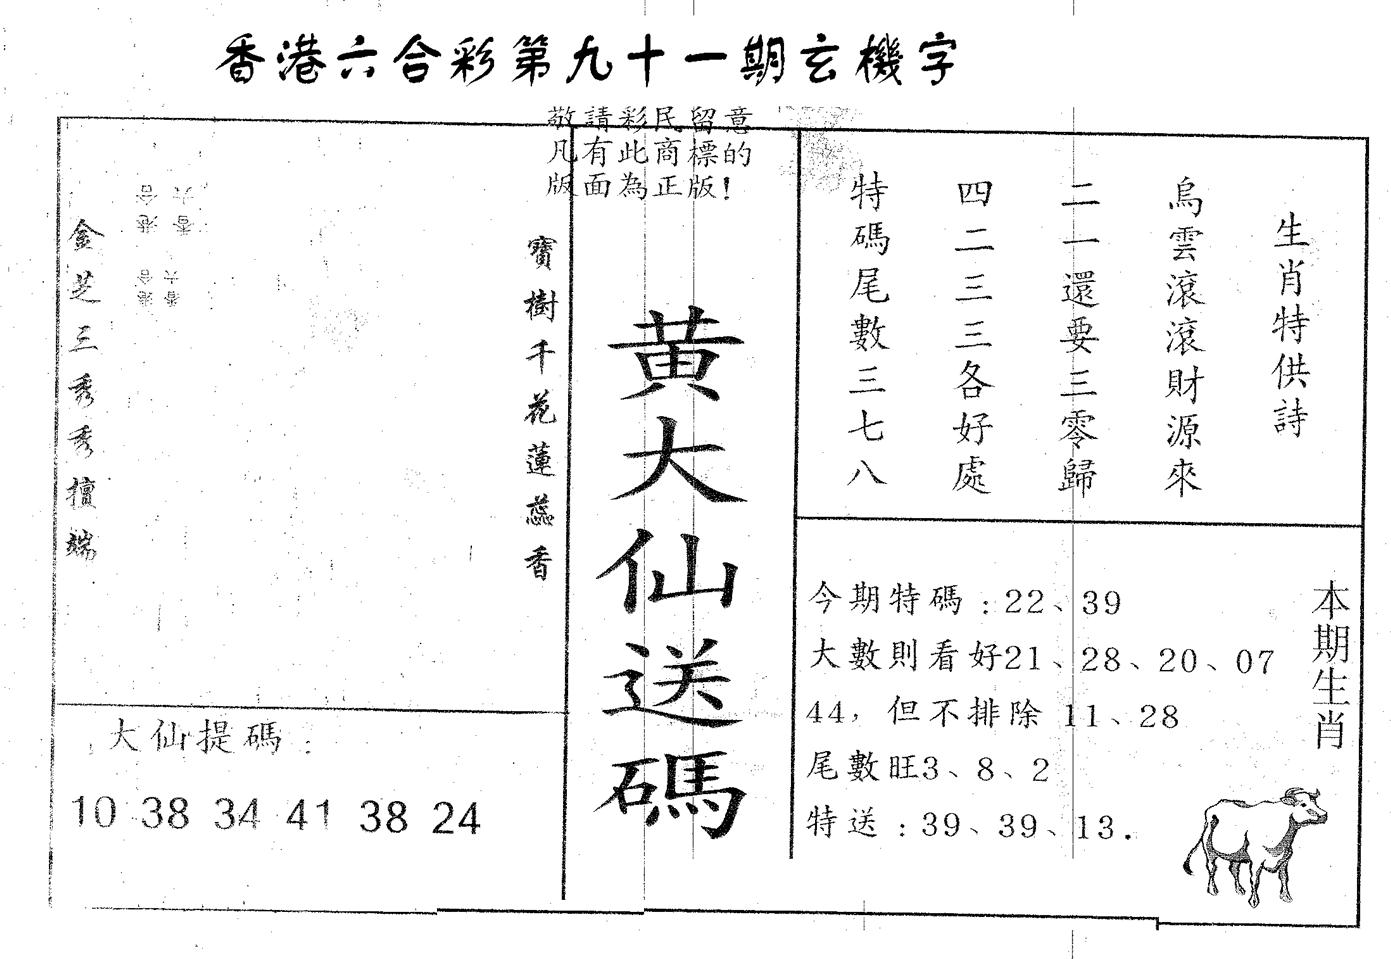 香港六合彩第九十一期玄機字
敬請彩民留意
凡有此商標的
版面為正版!
生肖特供詩
烏雲滾滾財源來
二一還要三零歸
四二三三各好處
特碼尾數三七八
黃大仙送碼
寶樹千花蓮蕊香
金芝三秀秀檀端
香港六合
香港六合
本期生肖
今期特碼:22、39
大數則看好21、28、20、07
44,但不排除 11、28
尾數旺3、8、2
特送:39、39、13.
大仙提碼:
10 38 34 41 38 24